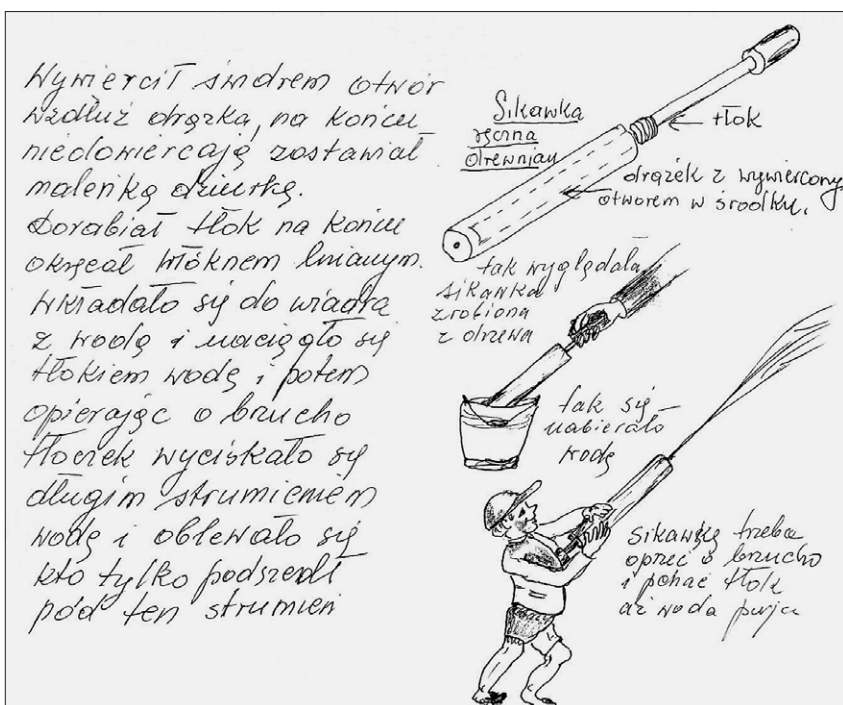 Wywiercił świdrem otwór
wzdłuż drążka, na końcu
niedowiercają zostawiał
maleńką dziurkę.
Dorabiał tłok na końcu
okręcał włóknem lnianym.
Wkładało się do wiadra
z wodą i naciągło się
tłokiem wodę i potem
opierając o brzucho
tłoczek wyciskało się
długim strumieniem
wodę i oblewało się
kto tylko podszedł
pod ten strumień
Sikawka
ręczna
drewnian
tłok
drążek z wywiercony
otworem w środku.
tak wyglądała
sikawka
zrobiona
z drzewa
tak się
nabierało
wodę
sikawkę trzeba
oprzeć o brzucho
i pchać tłok
aż woda